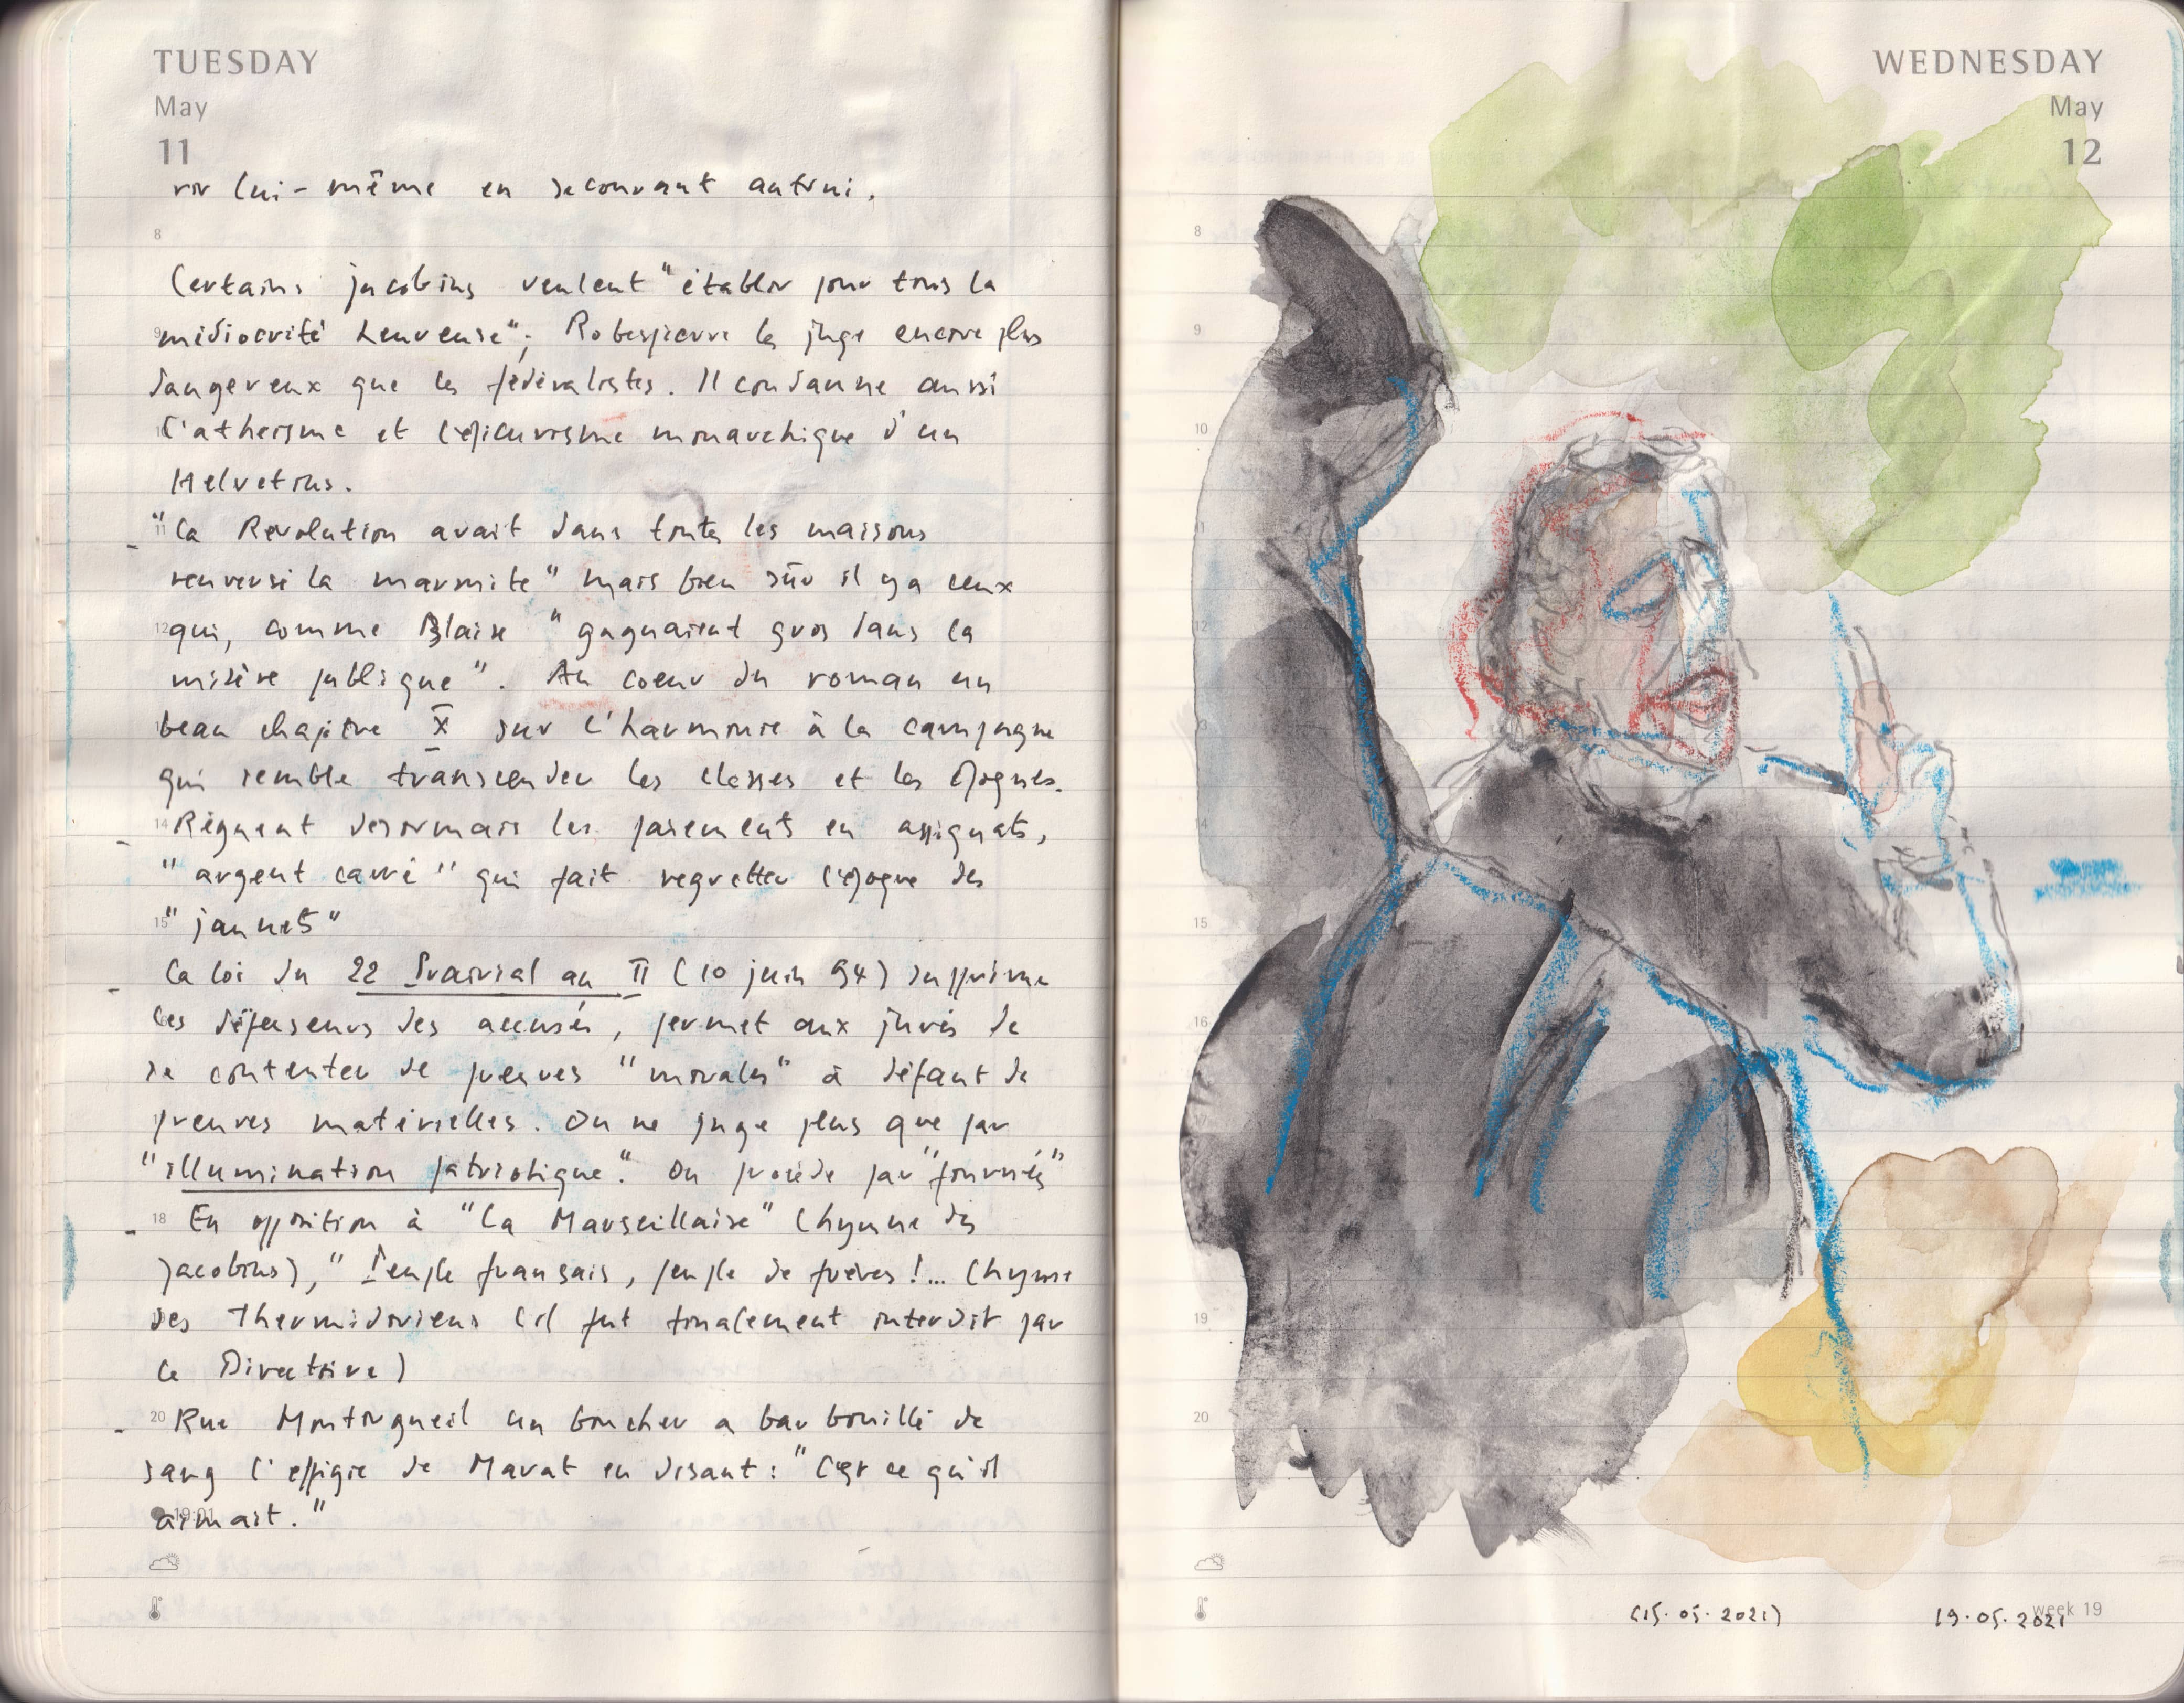 TUESDAY
May
11
rir lui-même en secourant autrui.
8
Certains jacobins veulent "établir pour tous la
9
médiocrité heureuse"; Robespierre les juge encore plus
dangereux que les fédéralistes. Il condamne aussi
10
l'athéisme et l'épicurisme monarchique d'un
Helvetius.
11
"La Révolution avait dans toutes les maisons
renversé la marmite" mais bien sûr il y a ceux
12
qui, comme Blaise "gagnaient gros dans la
misère publique". Au coeur du roman un
beau chapitre X sur l'harmonie à la campagne
qui semble transcender les classes et les époques.
14
- Règnent désormais les paiements en assignats,
"argent carré" qui fait regretter l'époque des
15
"jaunets"
- La loi du 22 Prairial an II (10 juin 94) supprime
les défenseurs des accusés, permet aux jurés de
se contenter de preuves "morales" à défaut de
preuves matérielles. On ne juge plus que par
"illumination patriotique". On procède par "fournées"
18
- En opposition à "La Marseillaise" (hymne des
jacobins), "Peuple français, peuple de frères!... (hymne
des Thermidoriens (il fut finalement interdit par
le Directoire)
20
- Rue Montorgueil un boucher a barbouillé de
sang l'effigie de Marat en disant: "C'est ce qu'il
19:01
aimait."
WEDNESDAY
May
12
8
9
10
11
12
13
14
15
16
19
20
(15.05.2021)
19.05.2021
week 19